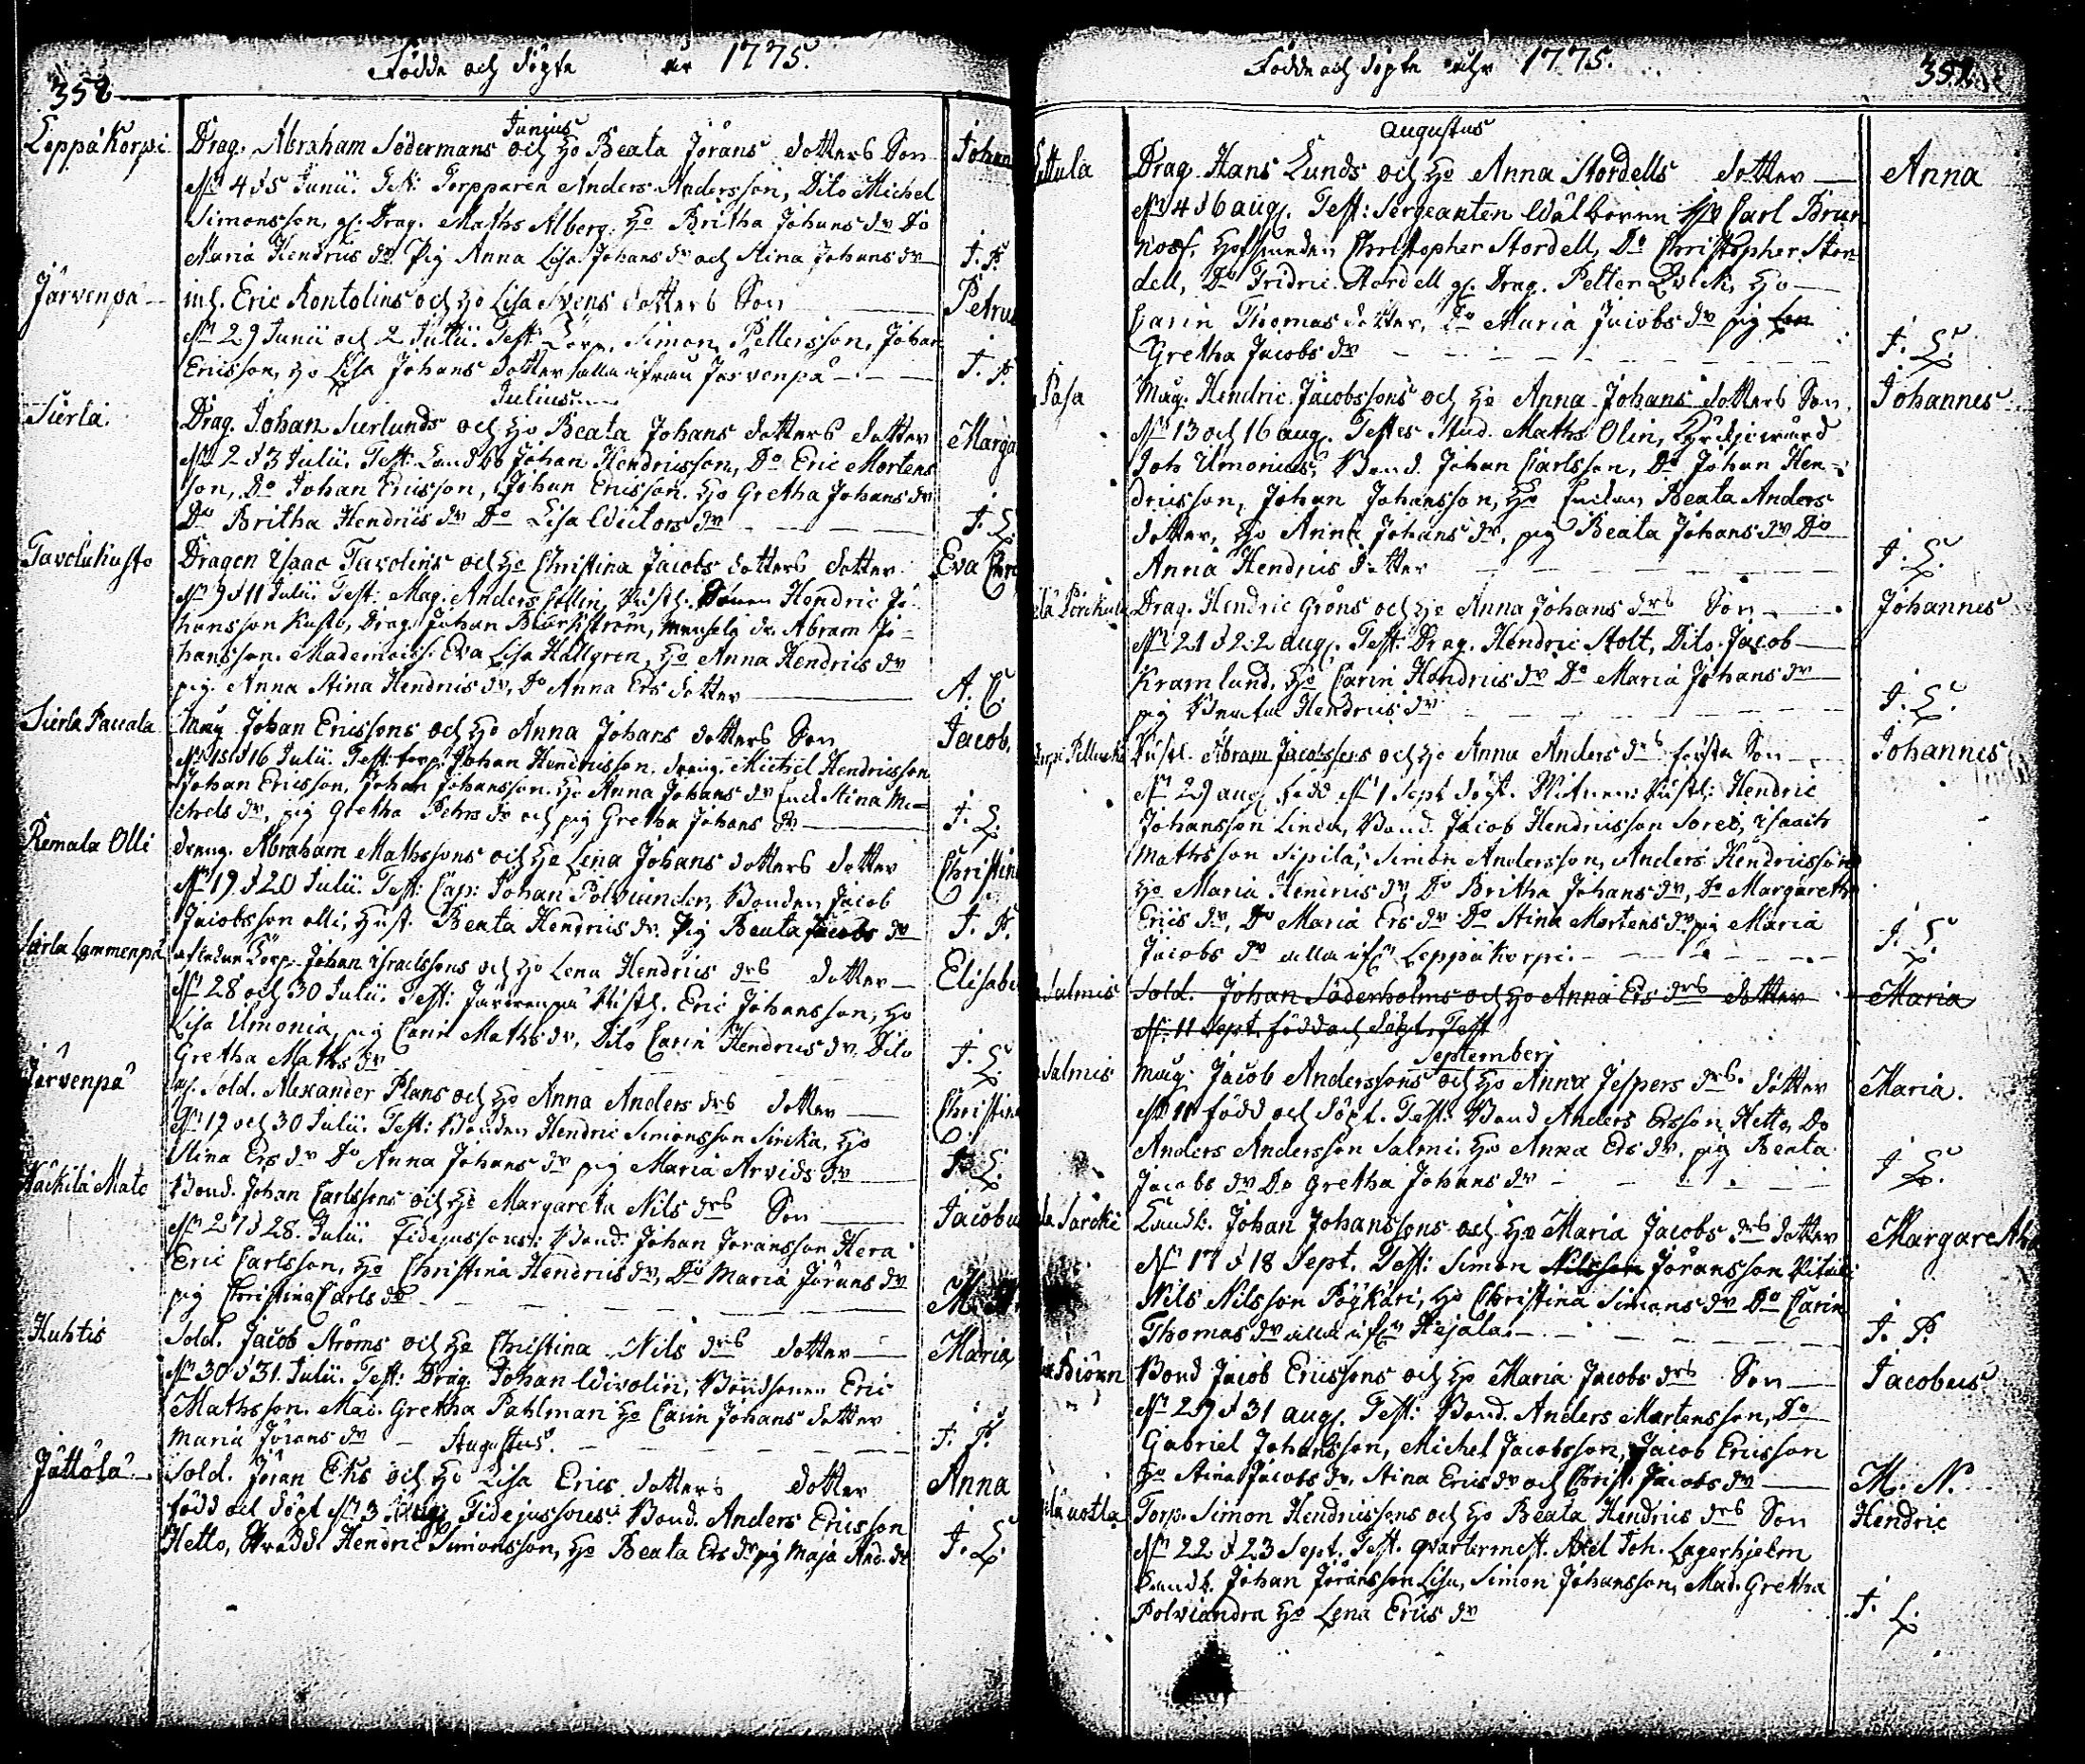 Födde och döpte år 1775.
358
Junius
Leppäkorpi Drag. Abraham Södermans och H:o Beata Jörans dotters Son Johan
d. 4 d 5 Junii. Test: Torpparen Anders Andersson, Dito Michel
Simonsson, gl. Drag. Maths Alberg. H:o Britha Johans dr Do
Maria Hendrics dr Pig Anna Lisa Johans dr och Stina Johans dr J. P.
Järvenpä inh. Eric Kontolins och H:o Lisa Svens dotters Son Petrus
d. 29 Junii och 2 Julii. Test: Simon Pettersson, Johan
Ericsson, H:o Lisa Johans dotter alla ifrån Järvenpä J. P.
Julius
Sierla. Drag. Johan Sierlunds och H:o Beata Johans dotters dotter Marga
d. 2 d 3 Julii. Test: Landb. Johan Hendricsson, Do Eric Mortens
son, Do Johan Ericsson, Johan Ericsson. H:o Gretha Johans dr
Do Britha Hendrics dr Do Lisa Victors dr J. L.
Tavoluhusto Dragon Isaac Tavolins och H:o Christina Jacobs dotters dotter Eva Chri
d. 9 d 11 Julii. Test: Mag. Anders Collin, Hendric Jo
hansson Kusto, Drag. Johan Biörkström, Abram Jo
hansson. Mademoiss. Eva Lisa Hallgren, H:o Anna Hendrics dr
pig. Anna Stina Hendrics dr, Do Anna Ers dotter A. C.
Sierla Paccala Mag Johan Ericssons och H:o Anna Johans dotters Son Jacob.
d. 15 d 16 Julii. Test: torp. Johan Hendricsson, dreng. Michel Hendricsson
Johan Ericsson, Johan Johansson. H:o Anna Johans dr Enck. Stina Mi
chels dr, pig Gretha Petrs dr och pig Gretha Johans dr J. L.
Remala Olli dreng. Abraham Mathssons och H:o Lena Johans dotters dotter Christin
d. 19 d 20 Julii. Test: Cap: Johan Polviander, Bonden Jacob
Jacobsson olli, Hust. Beata Hendrics dr. Pig Beata Jacobs dr J. P.
Sierla Lammenpä Torp. Johan Israelssons och H:o Lena Hendrics drs dotter Elisabe
d. 28 och 30 Julii. Test: Järvenpä Eric Johansson, H:o
Lisa Umonia, pig Carin Maths dr, Dito Carin Hendrics dr. Dito
Gretha Maths dr J. L.
Järvenpä gl. Sold. Alexander Plans och H:o Anna Anders drs dotter Christin
d. 19 och 30 Julii. Test: Bonden Hendric Simonsson Sirckia, H:o
Stina Ers dr Do Anna Johans dr pig Maria Arvids dr J. L.
Bond. Johan Carlssons och H:o Margareta Nils drs Son Jacobu
d. 27 d 28. Julii. Fidejussores: Bond. Johan Joransson Hera
Eric Carlsson, H:o Christina Hendrics dr, Do Maria Jörans dr
pig Christina Carls dr
Huhtis Sold. Jacob Ströms och H:o Christina Nils drs dotter Maria
d. 30 d 31. Julii. Test: Drag. Johan Wivolin, Bondsonen Eric
Mathsson. Mad. Gretha Pahlman H:o Carin Johans dotter
Maria Jörans dr J. P.
Augustus.
Jättölä Sold. Jöran Eks och H:o Lisa Erics dotters dotter Anna
född och döpt d. 3 Aug. Fidejussores Bond. Anders Ericsson
Hetto, Skrädd. Hendric Simonsson, H:o Beata Ers dr pig Maja And. dr J. L.
Födde och döpte åhr 1775.
augustus
Drag. Hans Lunds och H:o Anna Stordells dotter Anna
d. 4 d 6 aug. Test: Sergeanten Wälborne Hr Carl Brun
now, Christopher Stordell, Do Christopher Stor
dell, Do Fridric Stordell gl. Drag. Petter Qvick, H:o
Carin Thomas dotter, Do Maria Jacobs dr pig
Gretha Jacobs dr J. L.
Pasa Mag. Hendric Jacobssons och H:o Anna Johans dotters Son. Johannes
d. 13 och 16 aug. Testes. Stud. Maths Olin, Kyrckiowärd
Joh Umonius, Bond. Johan Carlsson, Do Johan Hen
dricsson, Johan Johansson, H:o Enckan Beata Anders
dotter, H:o Anna Johans dr, pig Beata Johans dr Do
Anna Hendrics dotter J. L.
Drag. Hendric Gröns och H:o Anna Johans drs Son Johannes
d. 21 d 22 aug. Test: Drag. Hendric Stolt, Dito Jacob
Kramlund, H:o Carin Hendrics dr Do Maria Johans dr
pig Beata Hendrics dr J. L.
Abram Jacobssons och H:o Anna Anders drs första Son Johannes
d. 29 aug född d. 1 Sept döpt. Hendric
Johansson Linda, Bond. Jacob Hendricsson Soroi, Isaach
Mathsson Sipilä, Simon Andersson, Anders Hendricsson
H:o Maria Hendrics dr, Do Britha Johans dr, Do Margaretha
Erics dr, Do Maria Ers dr Do Stina Mortens dr pig Maria
Jacobs dr alla ifrån Leppäkorpi. J. L.
Salmis Sold. Johan Söderholms och H:o Anna Ers drs dotter Maria
d. 11 Sept. född och döpt. Test
September
Salmis Mag. Jacob Anderssons och H:o Anna Jespers drs. dotter Maria.
d. 11 född och döpt. Test. Bond Anders Ersson Hetto, Do
Anders Andersson Salmi. H:o Anna Ers dr. pig Beata
Jacobs dr Do Gretha Johans dr J. L.
Särcki Landb. Johan Johanssons och H:o Maria Jacobs drs dotter Margaretha
d. 17 d 18 Sept. Test: Simon Nilsson Jöransson
Nils Nilsson Pöykäri, H:o Christina Simons dr Do Carin
Thomas dr alla ifrån Hejala. J. P.
Biörn Bond Jacob Ericssons och H:o Maria Jacobs drs Son Jacobus
d. 29 d 31 aug. Test: Bond. Anders Mortensson, Do
Gabriel Johansson, Michel Jacobsson, Jacob Ericsson
H:o Stina Jacobs dr, Stina Erics dr och Christ. Jacobs dr M. N.
Torp. Simon Hendricssons och H:o Beata Hendrics drs Son Hendric
d. 22 d 23 Sept. Test. qvartermest. Axel Joh. Lagerhjelm
Landb. Johan Jöransson Lisu, Simon Johansson, Mad. Gretha
Polviandra H:o Lena Erics dr J. L.